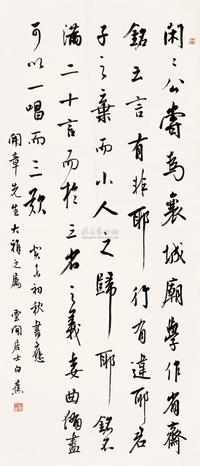 闲闲公尝为襄城庙学作省斋
铭立言有非耶行有违耶君
子之弃而小人之归耶铭不
满二十言而于三省之义委曲备尽
可以一唱而三叹
开章先生大雅之属 癸未初秋书应
云间居士白蕉